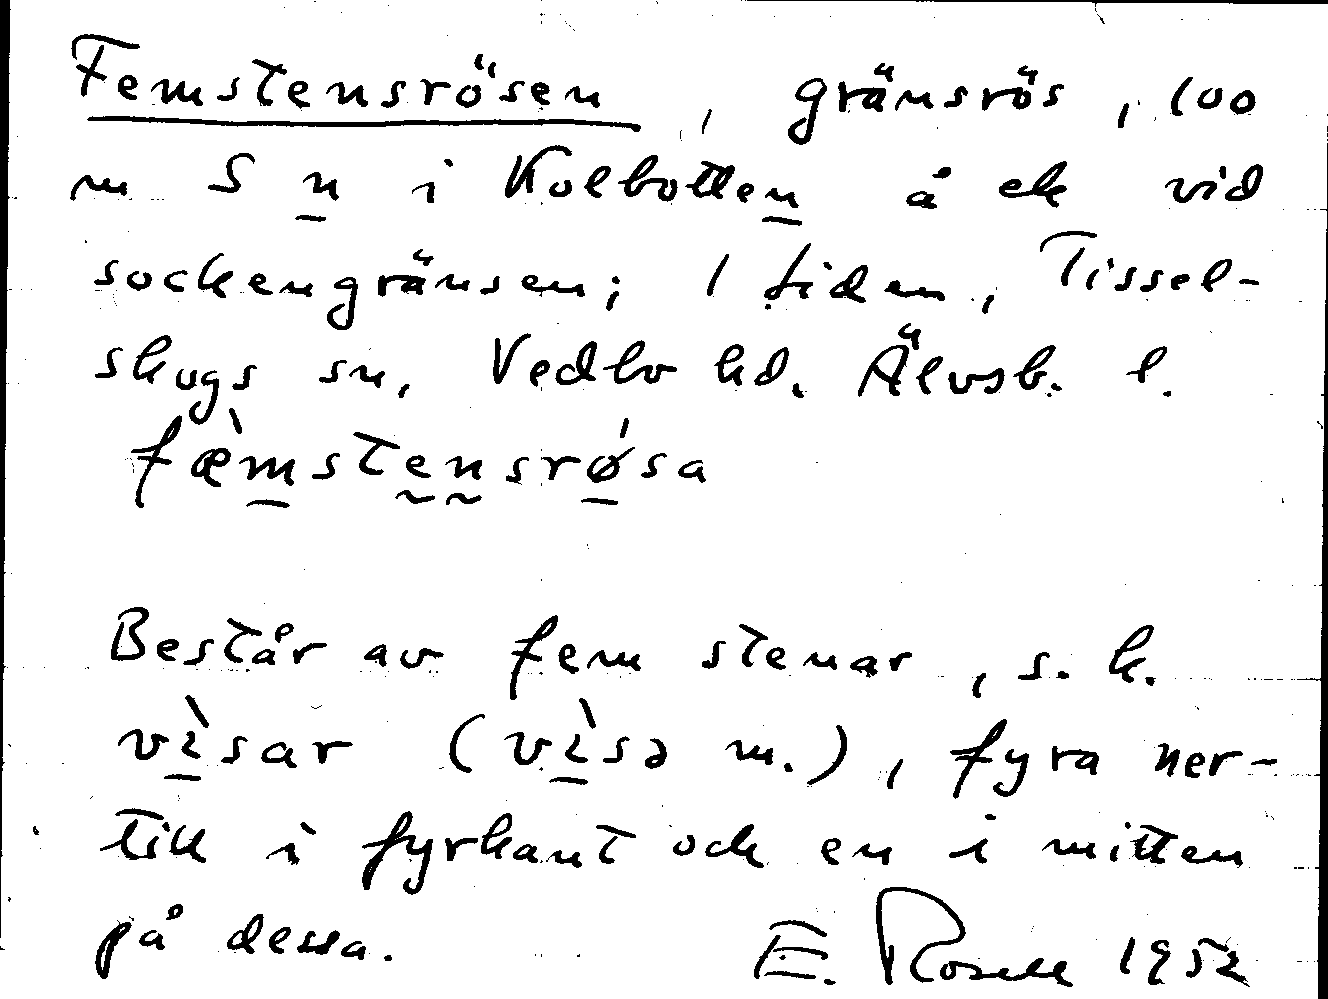 Femstensrösen, gränsrös, 100
m S n i Kolbotten å ek vid
sockengränsen; 1 tiden, Tissel-
skogs sn, Vedbo hd. Älvsb. l.
fæ̀mstensrǿsa
Består av fem stenar, s.k.
vìsar (vìsə m.), fyra ner-
till i fyrkant och en i mitten
på dessa. E. Rosell 1952